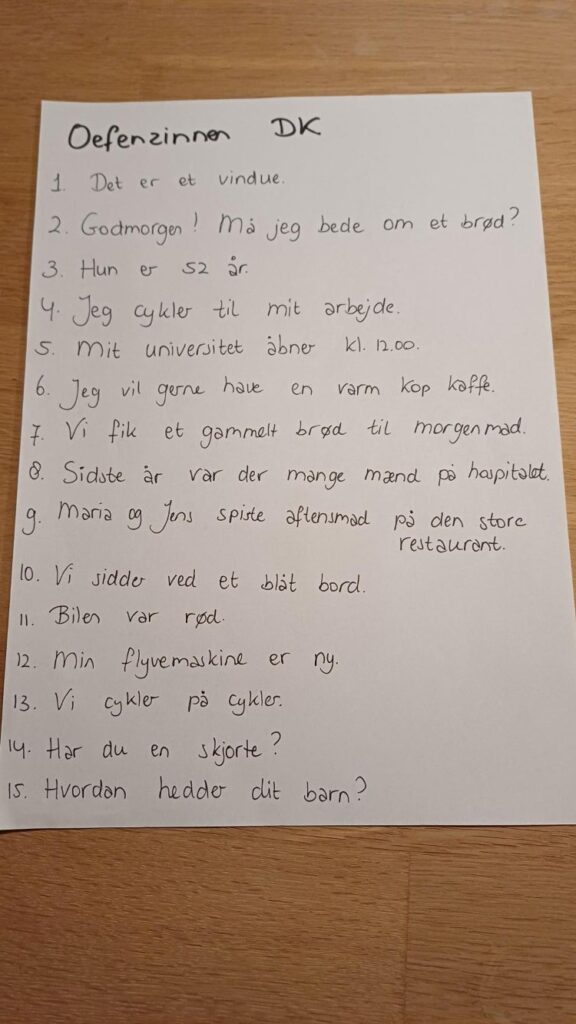 Oefenzinnen DK
1. Det er et vindue.
2. Godmorgen! Må jeg bede om et brød?
3. Hun er 52 år.
4. Jeg cykler til mit arbejde.
5. Mit universitet åbner kl. 12.00.
6. Jeg vil gerne have en varm kop kaffe.
7. Vi fik et gammelt brød til morgenmad.
8. Sidste år var der mange mænd på hospitalet.
9. Maria og Jens spiste aftensmad på den store
restaurant.
10. Vi sidder ved et blåt bord.
11. Bilen var rød.
12. Min flyvemaskine er ny.
13. Vi cykler på cykler.
14. Har du en skjorte?
15. Hvordan hedder dit barn?